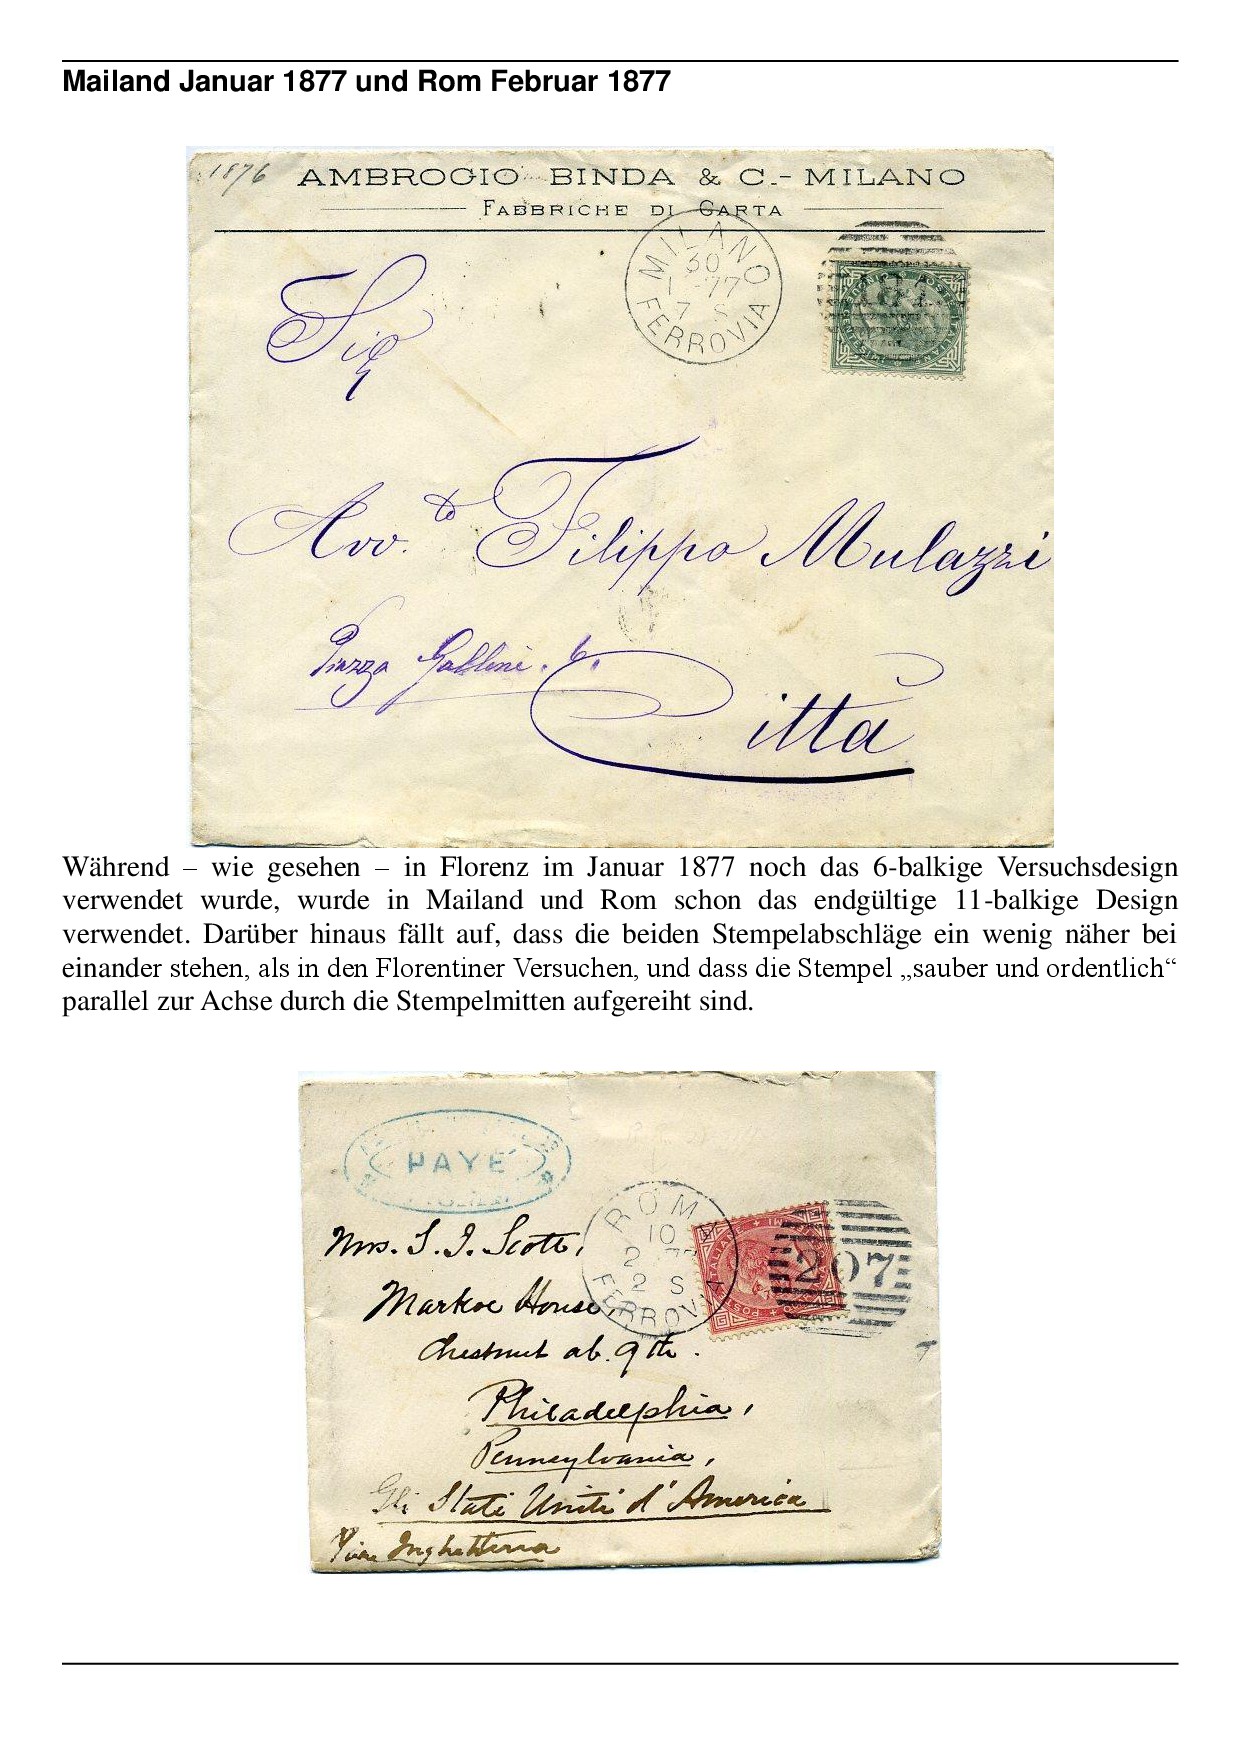 Mailand Januar 1877 und Rom Februar 1877
1876
AMBROGIO BINDA & C.- MILANO
FABBRICHE DI CARTA
MILANO
30
1-77
7 S
FERROVIA
181
Sig
Avv.to Filippo Mulazzi
Piazza Gallini. 6.
Città
Während – wie gesehen – in Florenz im Januar 1877 noch das 6-balkige Versuchsdesign
verwendet wurde, wurde in Mailand und Rom schon das endgültige 11-balkige Design
verwendet. Darüber hinaus fällt auf, dass die beiden Stempelabschläge ein wenig näher bei
einander stehen, als in den Florentiner Versuchen, und dass die Stempel „sauber und ordentlich“
parallel zur Achse durch die Stempelmitten aufgereiht sind.
PAYE
ROMA
10
2 77
2 S
FERROVIA
207
Mrs. S. I. Scott,
Markoe House,
Chestnut ab. 9th.
Philadelphia,
Pennsylvania,
Gli Stati Uniti d'America
Inghilterra